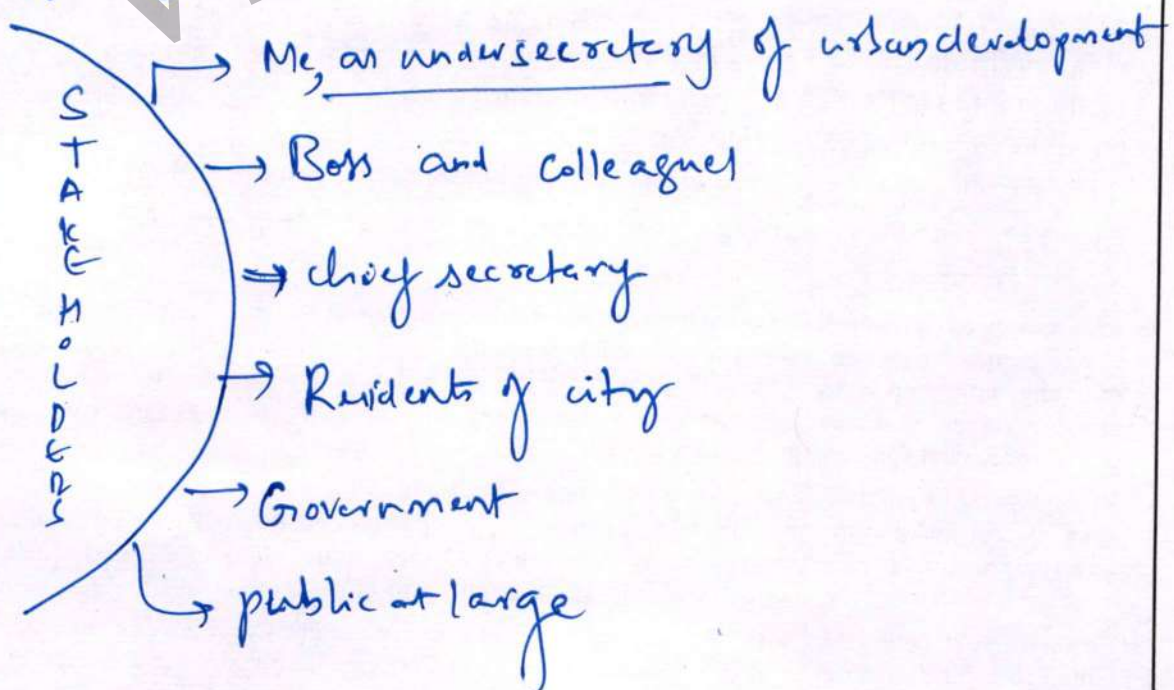 STAKEHOLDERS
Me, an undersecretary of urban development
Boss and colleagues
chief secretary
Residents of city
Government
public at large